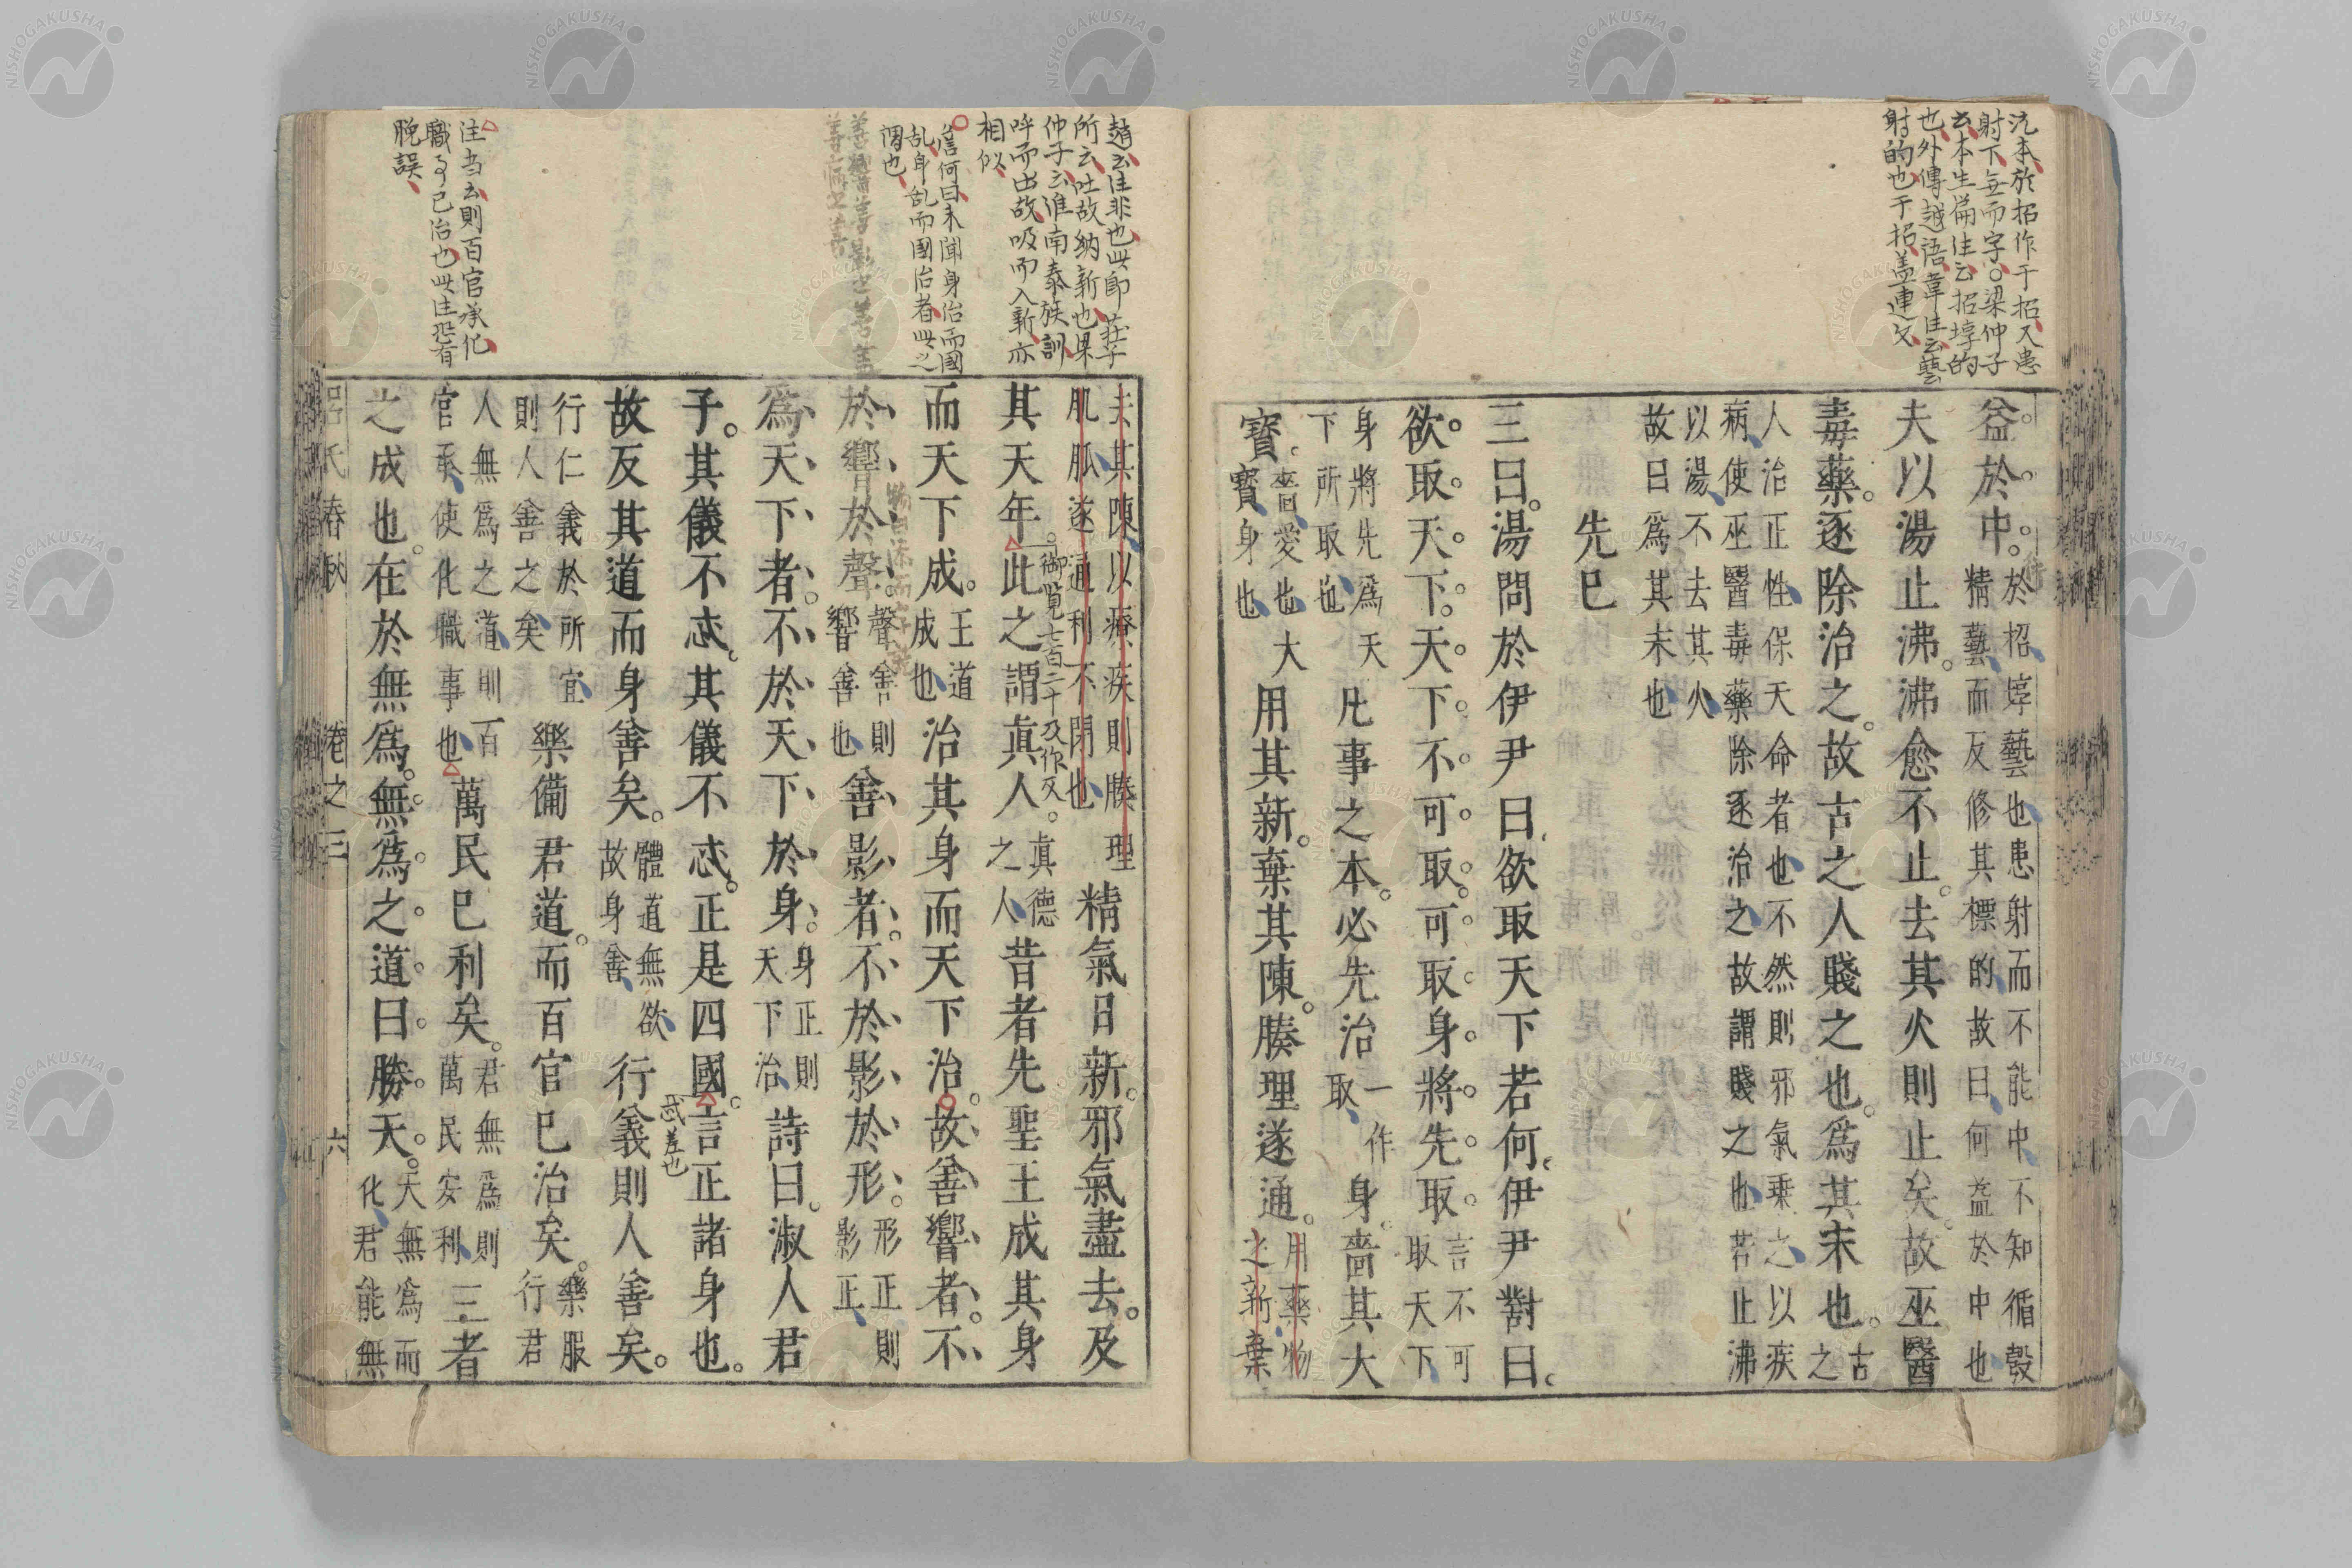 沇本於招作于招又患
射下無而字○梁仲子
云本生篇注云招埻的
也外傳越語韋注云藝
射的也于招盖連文
益於中於招埻藝也患射而不能中不知循彀
精藝而反修其標的故曰何益於中也
夫以湯止沸沸愈不止去其火則止矣故巫醫
毒藥逐除治之故古之人賤之也爲其末也古之
人治正性保天命者也不然則邪氣乘之以疾
病使巫醫毒藥除逐治之故謂賤之也若止沸
以湯不去其火
故曰爲其末也
先巳
三曰湯問於伊尹曰欲取天下若何伊尹對曰
欲取天下天下不可取可取身將先取言不可取天下
身將先爲天
下所取也
凡事之本必先治一作取身嗇其大
寶嗇愛也大寶身也用其新棄其陳腠理遂通用藥物之新棄
趙云注非也此即莊子
所云吐故納新也梁
仲子云淮南泰族訓
呼而出故吸而入新亦
相似
○詹何曰未聞身治而國
乱身乱而國治者此之
謂也
注当云則百官承化
職事已治也此注恐有
脫誤
去其陳以療疾則腠理
肌胍遂通利不閉也
精氣日新邪氣盡去及
其天年此之謂眞人眞德之人昔者先聖王成其身
御覽七百二十及作反
而天下成王道成也治其身而天下治故善響者不
於響於聲聲善則響善也善影者不於影於形形正則影正
爲天下者不於天下於身身正則天下治詩曰淑人君
子其儀不忒其儀不忒正是四國言正諸身也
忒差也
故反其道而身善矣體道無欲故身善行義則人善矣
行仁義於所宜
則人善之矣
樂備君道而百官已治矣樂服行君
人無爲之道則百
官承使化職事也
萬民已利矣君無爲則萬民安利三者
之成也在於無爲無爲之道曰勝天天無爲而化君能無
呂氏春秋 卷之三 六
NISHOGAKUSHA